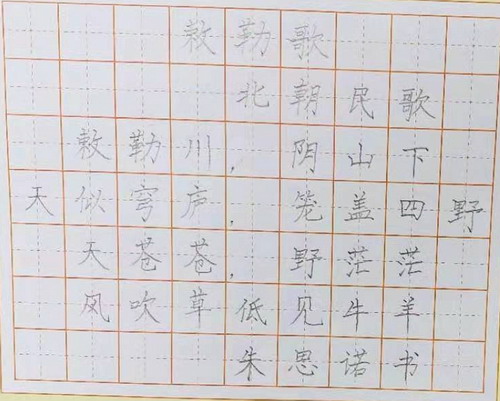 敕勒歌
北朝民歌
敕勒川，阴山下
天似穹庐，笼盖四野
天苍苍，野茫茫
风吹草低见牛羊
朱思诺书